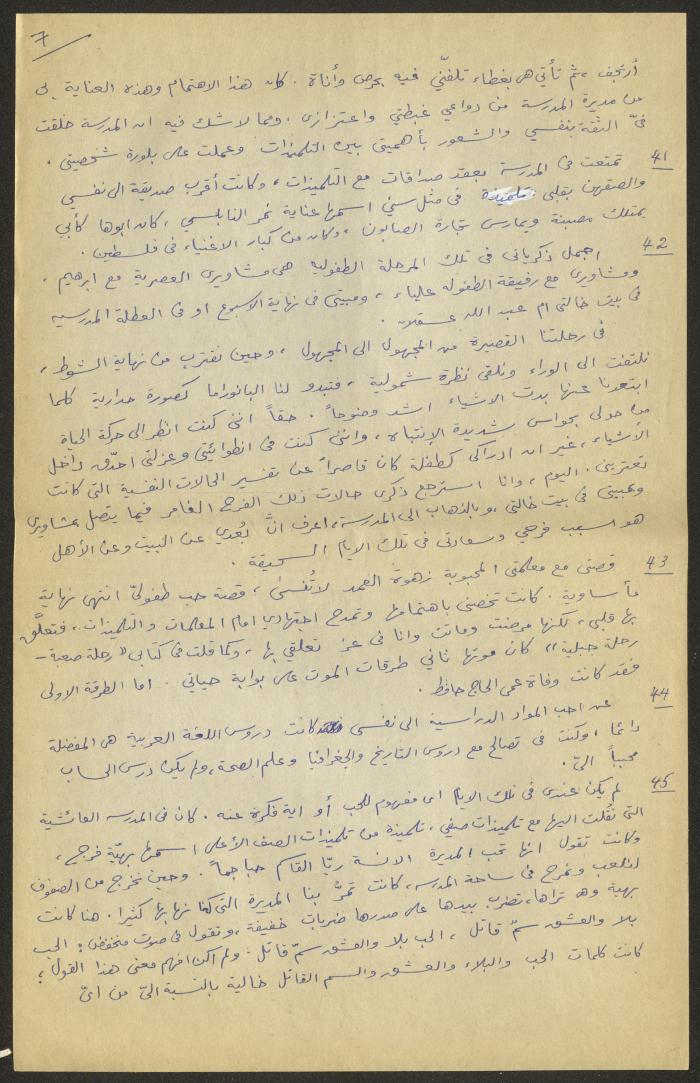 ٧
أرتجف، ثم تأتي هي بغطاء تلفّني فيه بحرص وأناة. كان هذا الاهتمام وهذه العناية بي
من مديرة المدرسة من دواعي غبطتي واعتزازي. ومما لا شك فيه ان المدرسة خلقت
فيّ الثقة بنفسي والشعور بأهميتي بين التلميذات وعملت على بلورة شخصيتي.
41 تمتعت في المدرسة بعقد صداقات مع التلميذات، وكانت أقرب صديقة الى نفسي
والصقهن بقلبي تلميذة في مثل سني اسمها عناية نمر النابلسي، كان ابوها كأبي
يمتلك مصبنة ويمارس تجارة الصابون، وكان من كبار الاغنياء في فلسطين.
42 اجمل ذكرياتي في تلك المرحلة الطفولية هي مشاويري العصرية مع ابرهيم.
ومشاويري مع رفيقة الطفولة علياء، ومبيتي في نهاية الاسبوع او في العطلة المدرسية
في بيت خالتي ام عبد الله عسقلان.
في رحلتنا القصيرة من المجهول الى المجهول، وحين نقترب من نهاية الشوط،
نلتفت الى الوراء ونلقي نظرة شمولية، فتبدو لنا البانوراما كصورة جدارية كلما
ابتعدنا عنها بدت الاشياء اشد وضوحاً. حقاً انني كنت انظر الى حركة الحياة
من حولي بحواس شديدة الإنتباه، وانني كنت في انطوائيتي وعزلتي احدّق داخل
الأشياء، غير ان ادراكي كطفلة كان قاصراً عن تفسير الحالات النفسية التي كانت
تعتريني. اليوم، وانا استرجع ذكرى حالات ذلك الفرح الغامر فيما يتصل بمشاويري
وبمبيتي في بيت خالتي، وبالذهاب الى المدرسة، اعرف انّ بُعدي عن البيت وعن الأهل
هو سبب فرحي وسعادتي في تلك الايام السحيقة.
43 قصتي مع معلمتي المحبوبة زهوة العمد لا تُنسى، قصة حب طفوليّ انتهى نهاية
مأساوية. كانت تخصني باهتمامها وتمدح اجتهادي امام المعلمات والتلميذات، فتعلّق
بها قلبي، لكنها مرضت وماتت وانا في عز تعلقي بها، وكما قلت في كتابي "رحلة صعبة –
رحلة جبلية" كان موتها ثاني طرقات الموت على بوابة حياتي. اما الطرقة الاولى
فقد كانت وفاة عمي الحاج حافظ.
44 عن احب المواد الدراسية الى نفسي كانت دروس اللغة العربية هي المفضلة
دائما، وكنت في تصالح مع دروس التاريخ والجغرافيا وعلم الصحة، ولم يكن درس الحساب
محبباً اليّ.
45 لم يكن عندي في تلك الايام اي مفهوم للحب أو اية فكرة عنه. كان في المدرسه العائشية
التي نُقلت اليها مع تلميذات صفي، تلميذة من تلميذات الصف الأعلى اسمها بهيّة فرح،
وكانت تقول انها تحب المديرة الآنسة ربّا القاسم حبا جماً. وحين نخرج من الصفوف
لنلعب ونمرح في ساحة المدرسه، كانت تمرُّ بنا المديرة التي كنا نهابها كثيرا. هنا كانت
بهية وهي تراها، تضرب بيدها على صدرها ضربات خفيفة، وتقول في صوت منخفض: الحب
بلا والعشق سمّ قاتل، الحب بلا والعشق سمّ قاتل. ولم اكن افهم معنى هذا القول؛
كانت كلمات الحب والبلاء والعشق والسم القاتل خالية بالنسبة اليّ من ايّ